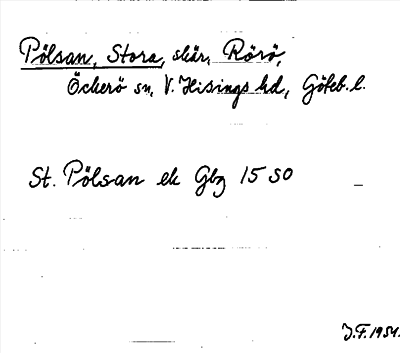 Pölsan, Stora, skär, Rörö,
Öckerö sn, V. Hisings hd, Göteb. l.
St. Pölsan ek Gbg 15 SO
J.F. 1951.